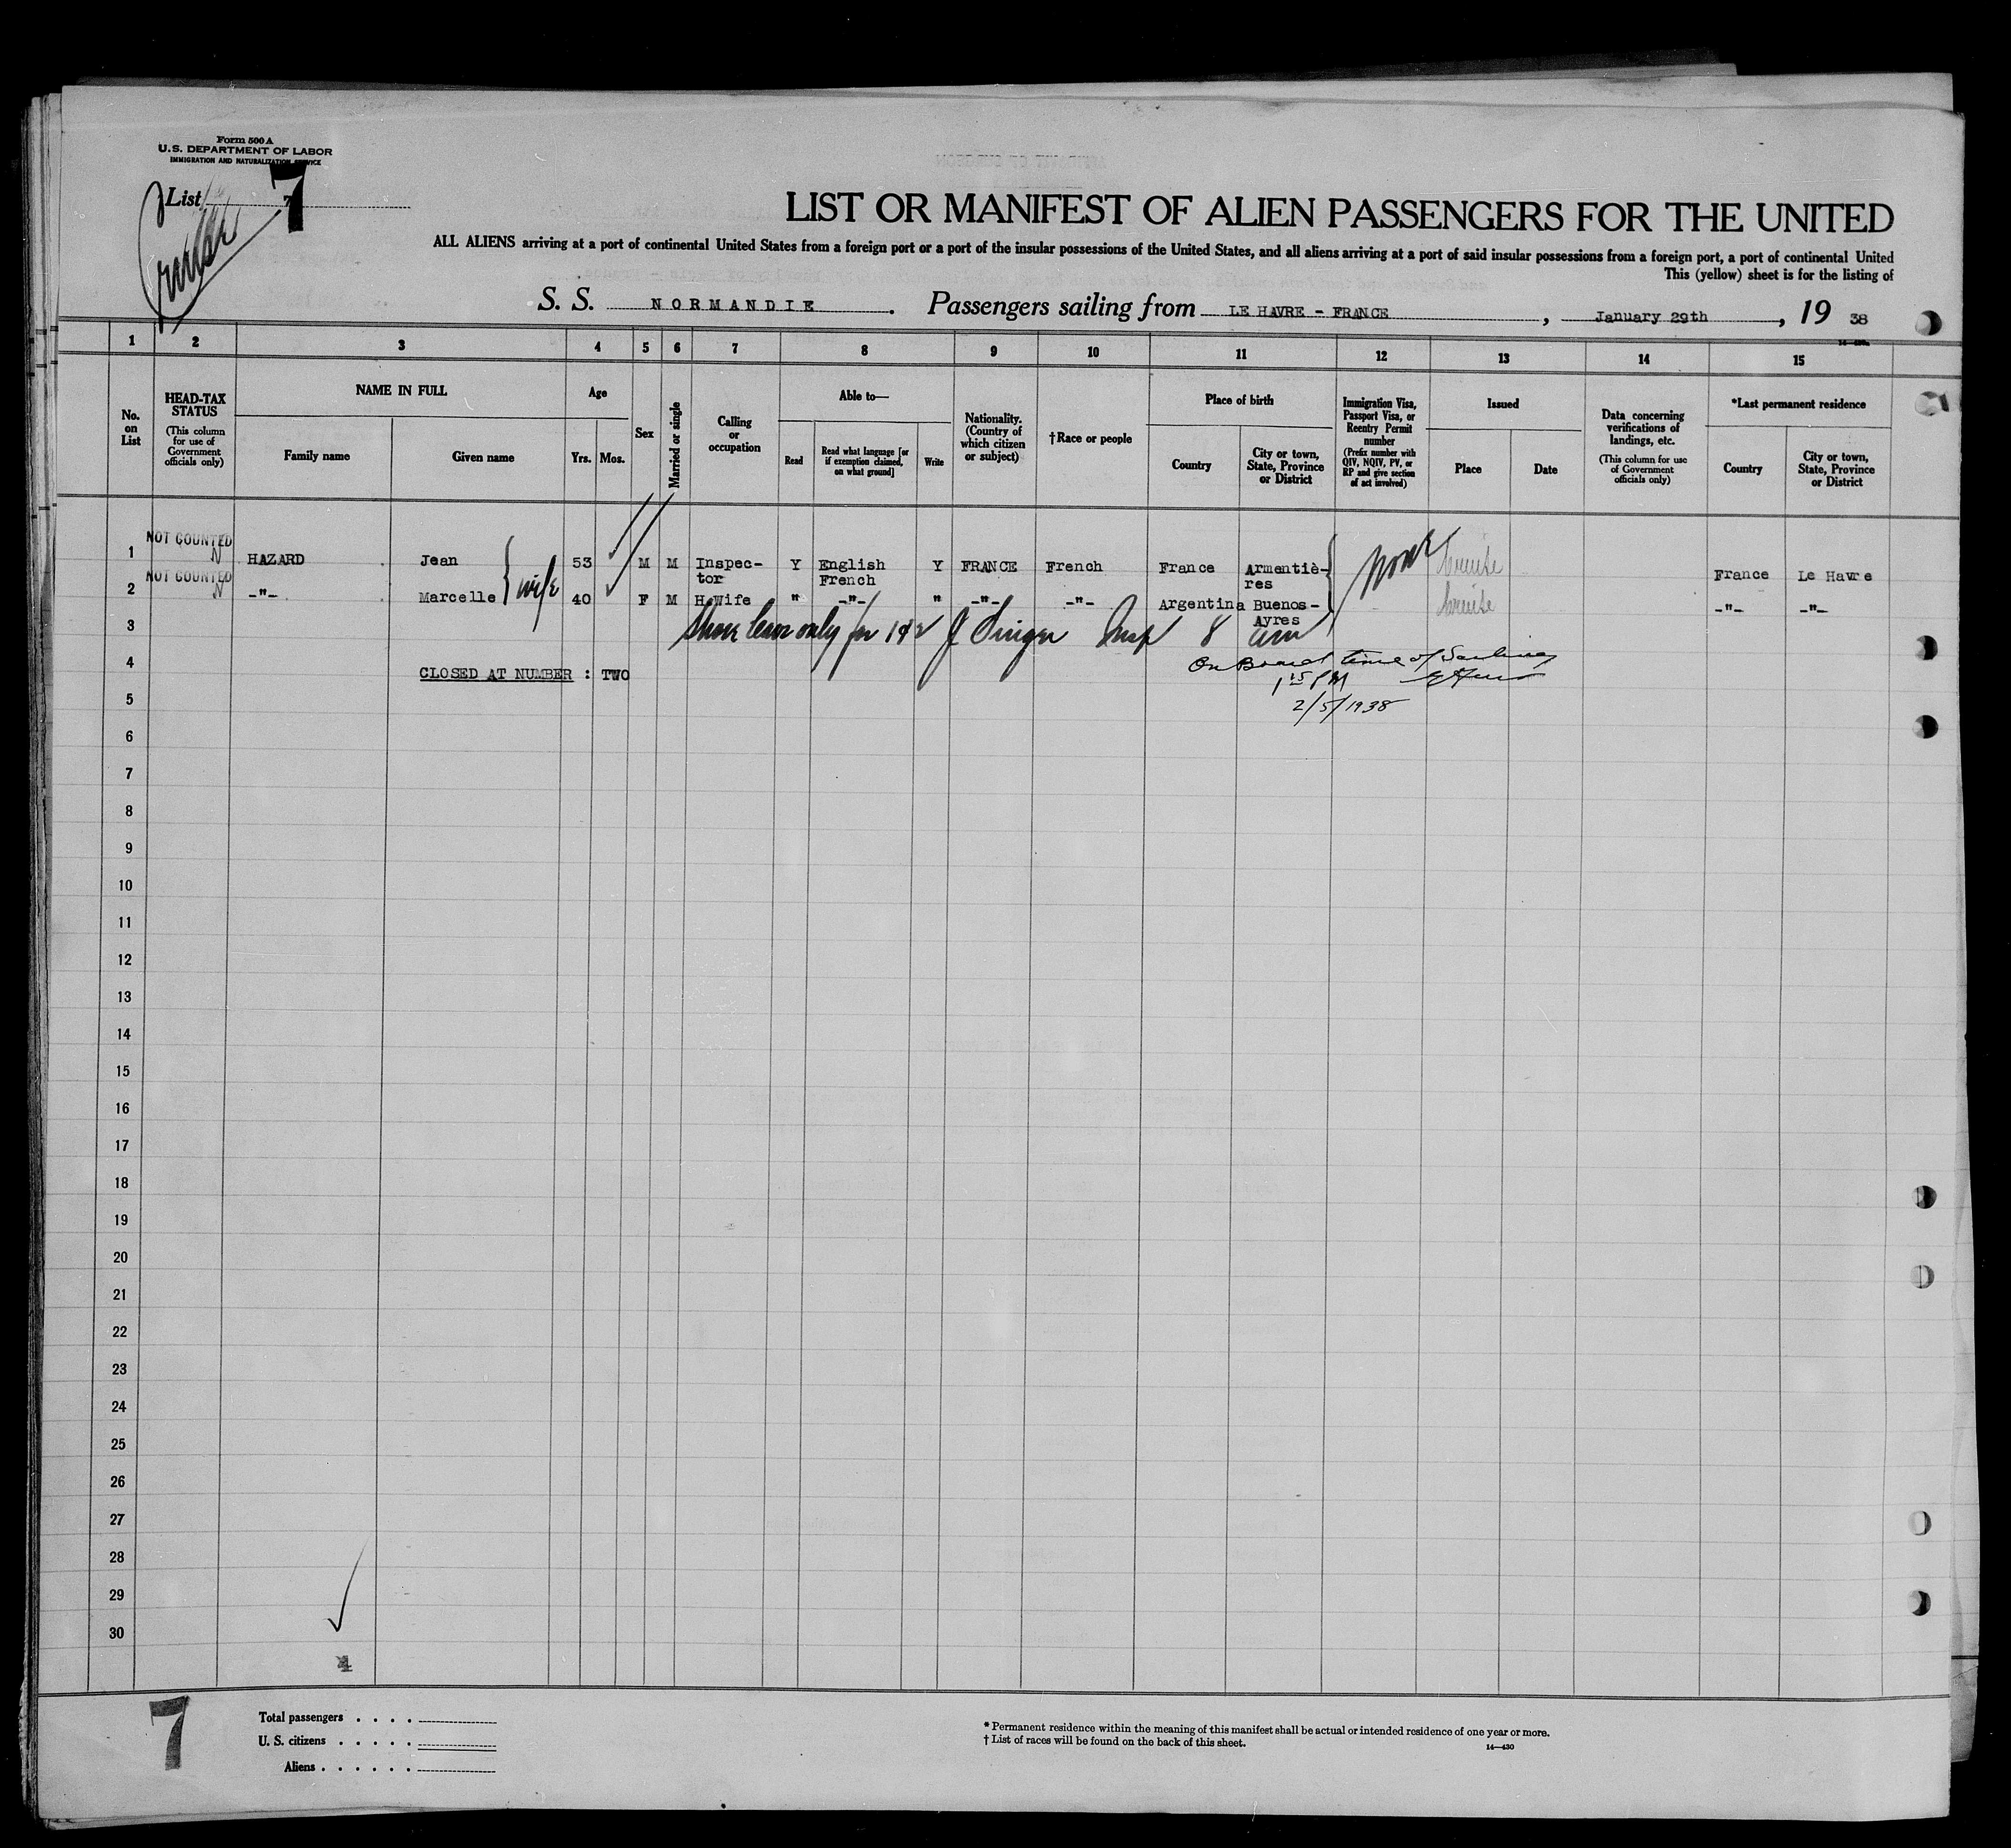 Form 500 A
U.S. DEPARTMENT OF LABOR
IMMIGRATION AND NATURALIZATION SERVICE
List 7
7
Cruise
LIST OR MANIFEST OF ALIEN PASSENGERS FOR THE UNITED
ALL ALIENS arriving at a port of continental United States from a foreign port or a port of the insular possessions of the United States, and all aliens arriving at a port of said insular possessions from a foreign port, a port of continental United
This (yellow) sheet is for the listing of
S. S. NORMANDIE. Passengers sailing from LE HAVRE - FRANCE, January 29th, 19 38
1 2 3 4 5 6 7 8 9 10 11 12 13 14 15
No. on List
HEAD-TAX STATUS
(This column for use of Government officials only)
NAME IN FULL
Family name Given name
Age
Yrs. Mos.
Sex
Married or single
Calling or occupation
Able to—
Read
Read what language [or if exemption claimed, on what ground]
Write
Nationality. (Country of which citizen or subject)
†Race or people
Place of birth
Country
City or town, State, Province or District
Immigration Visa, Passport Visa, or Reentry Permit number
(Prefix number with QIV, NQIV, PV, or RP and give section of act involved)
Issued
Place Date
Data concerning verifications of landings, etc.
(This column for use of Government officials only)
*Last permanent residence
Country
City or town, State, Province or District
NOT COUNTED
1 N HAZARD Jean 53 M M Inspec-tor Y English French Y FRANCE French France Armentiè-res None Cruise France Le Havre
NOT COUNTED
2 N -"- Marcelle wife 40 F M H.Wife " -"- " -"- -"- Argentina Buenos-Ayres Cruise -"- -"-
3 Shore leave only for 1 & 2 J Singer Insp 8 am
4 CLOSED AT NUMBER : TWO On Board time of Sailing
1 15 PM
5 2/5/1938
6
7
8
9
10
11
12
13
14
15
16
17
18
19
20
21
22
23
24
25
26
27
28
29
30
4
7
Total passengers . . . .
U. S. citizens . . . . .
Aliens . . . . . .
* Permanent residence within the meaning of this manifest shall be actual or intended residence of one year or more.
† List of races will be found on the back of this sheet.
14—430